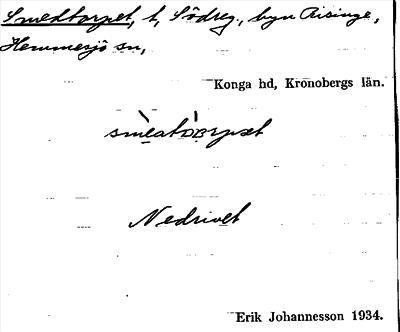 Smedtorpet, t, Södreg., byn Risinge,
Hemmesjö sn,
Konga hd, Kronobergs län.
Nedrivet
Erik Johannesson 1934.